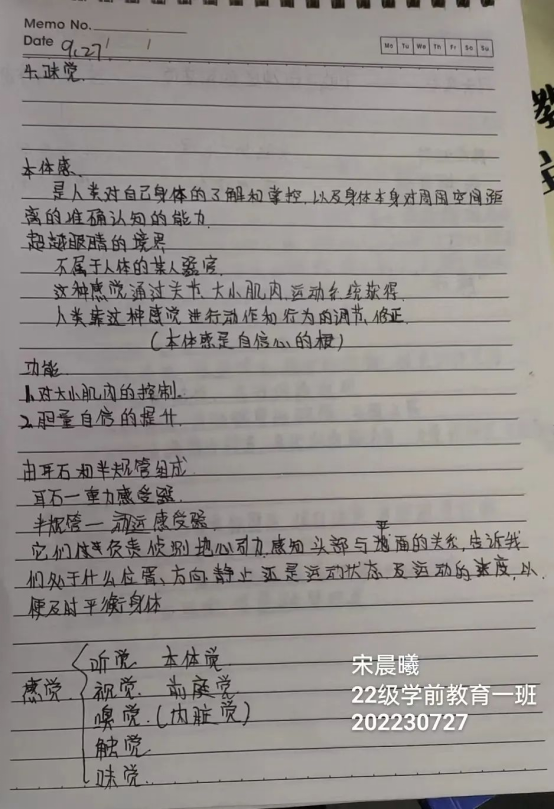 Memo No.
Date 9.27 / /
Mo Tu We Th Fr Sa Su
5.味觉
本体感
是人类对自己身体的了解和掌控,以及身体本身对周围空间距
离的准确认知的能力
超越眼睛的境界
不属于人体的某人器官
这种感觉通过关节、大小肌肉、运动系统获得
人类靠这种感觉进行动作和行为的调节、修正
(本体感是自信心的根)
功能
1.对大小肌肉的控制.
2.胆量自信的提升.
由耳石和半规管组成
耳石—重力感受器
半规管—动运感受器
它们负责侦测地心引力感知头部与地平面的关系,告诉我
们处于什么位置、方向静止还是运动状态及运动的速度,以
便及时平衡身体
听觉 本体觉
感觉 视觉 前庭觉
嗅觉 (内脏觉)
触觉
味觉
宋晨曦
22级学前教育一班
202230727